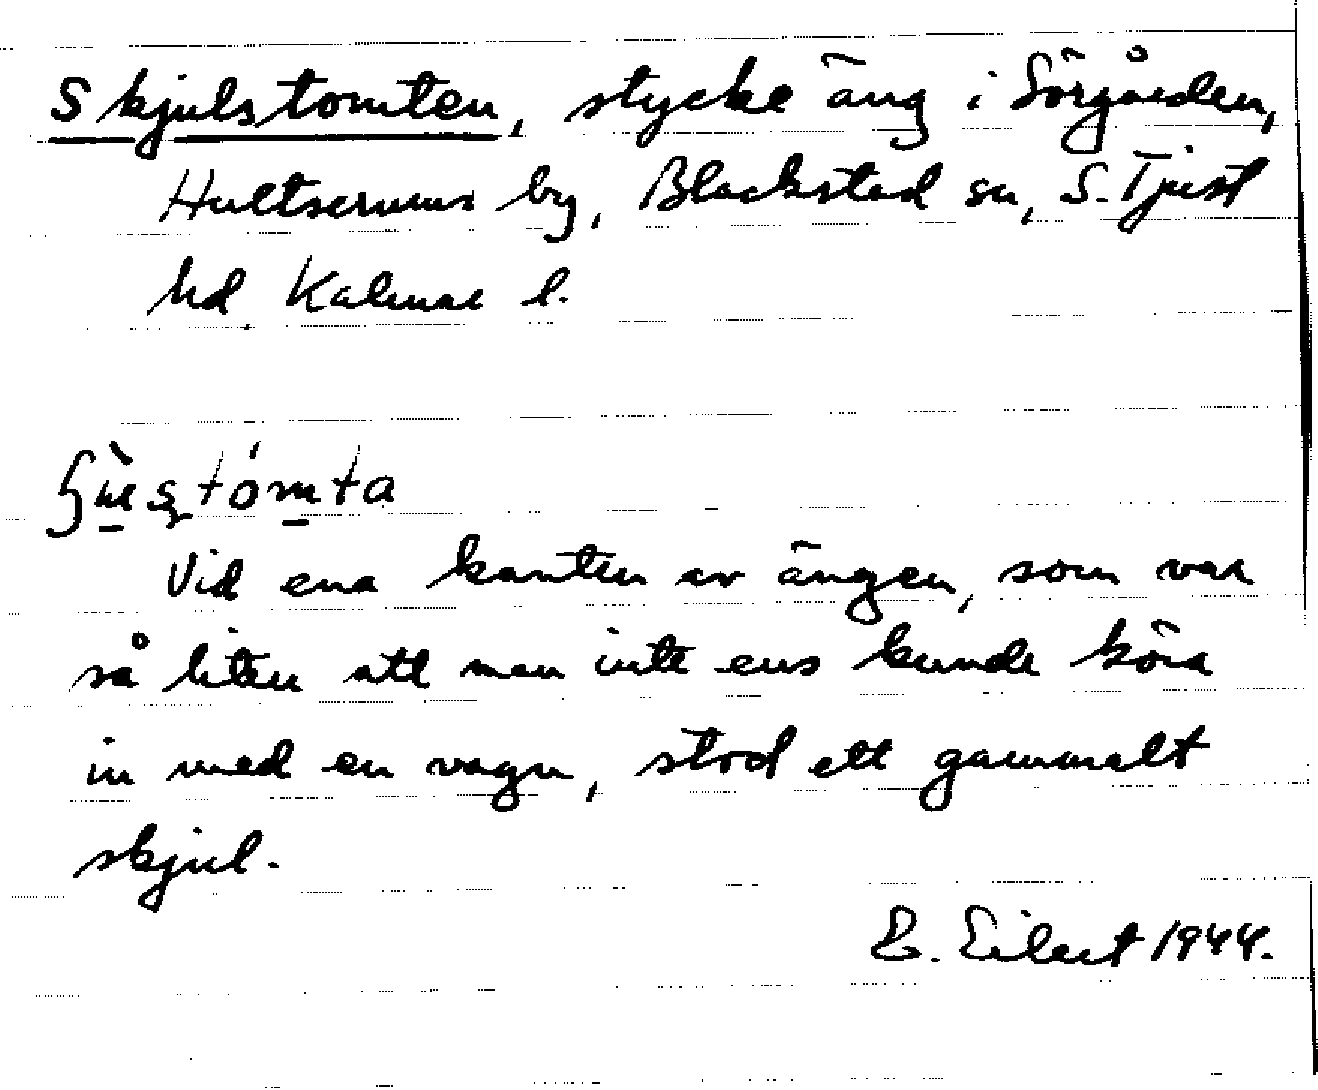 Skjulstomten, stycke äng i Sörgården,
Hultserums by, Blackstad sn, S. Tjust
hd Kalmar l.
Vid ena kanten av ängen, som var
så liten att man inte ens kunde köra
in med en vagn, stod ett gammalt
skjul.
E. Eilert 1944.